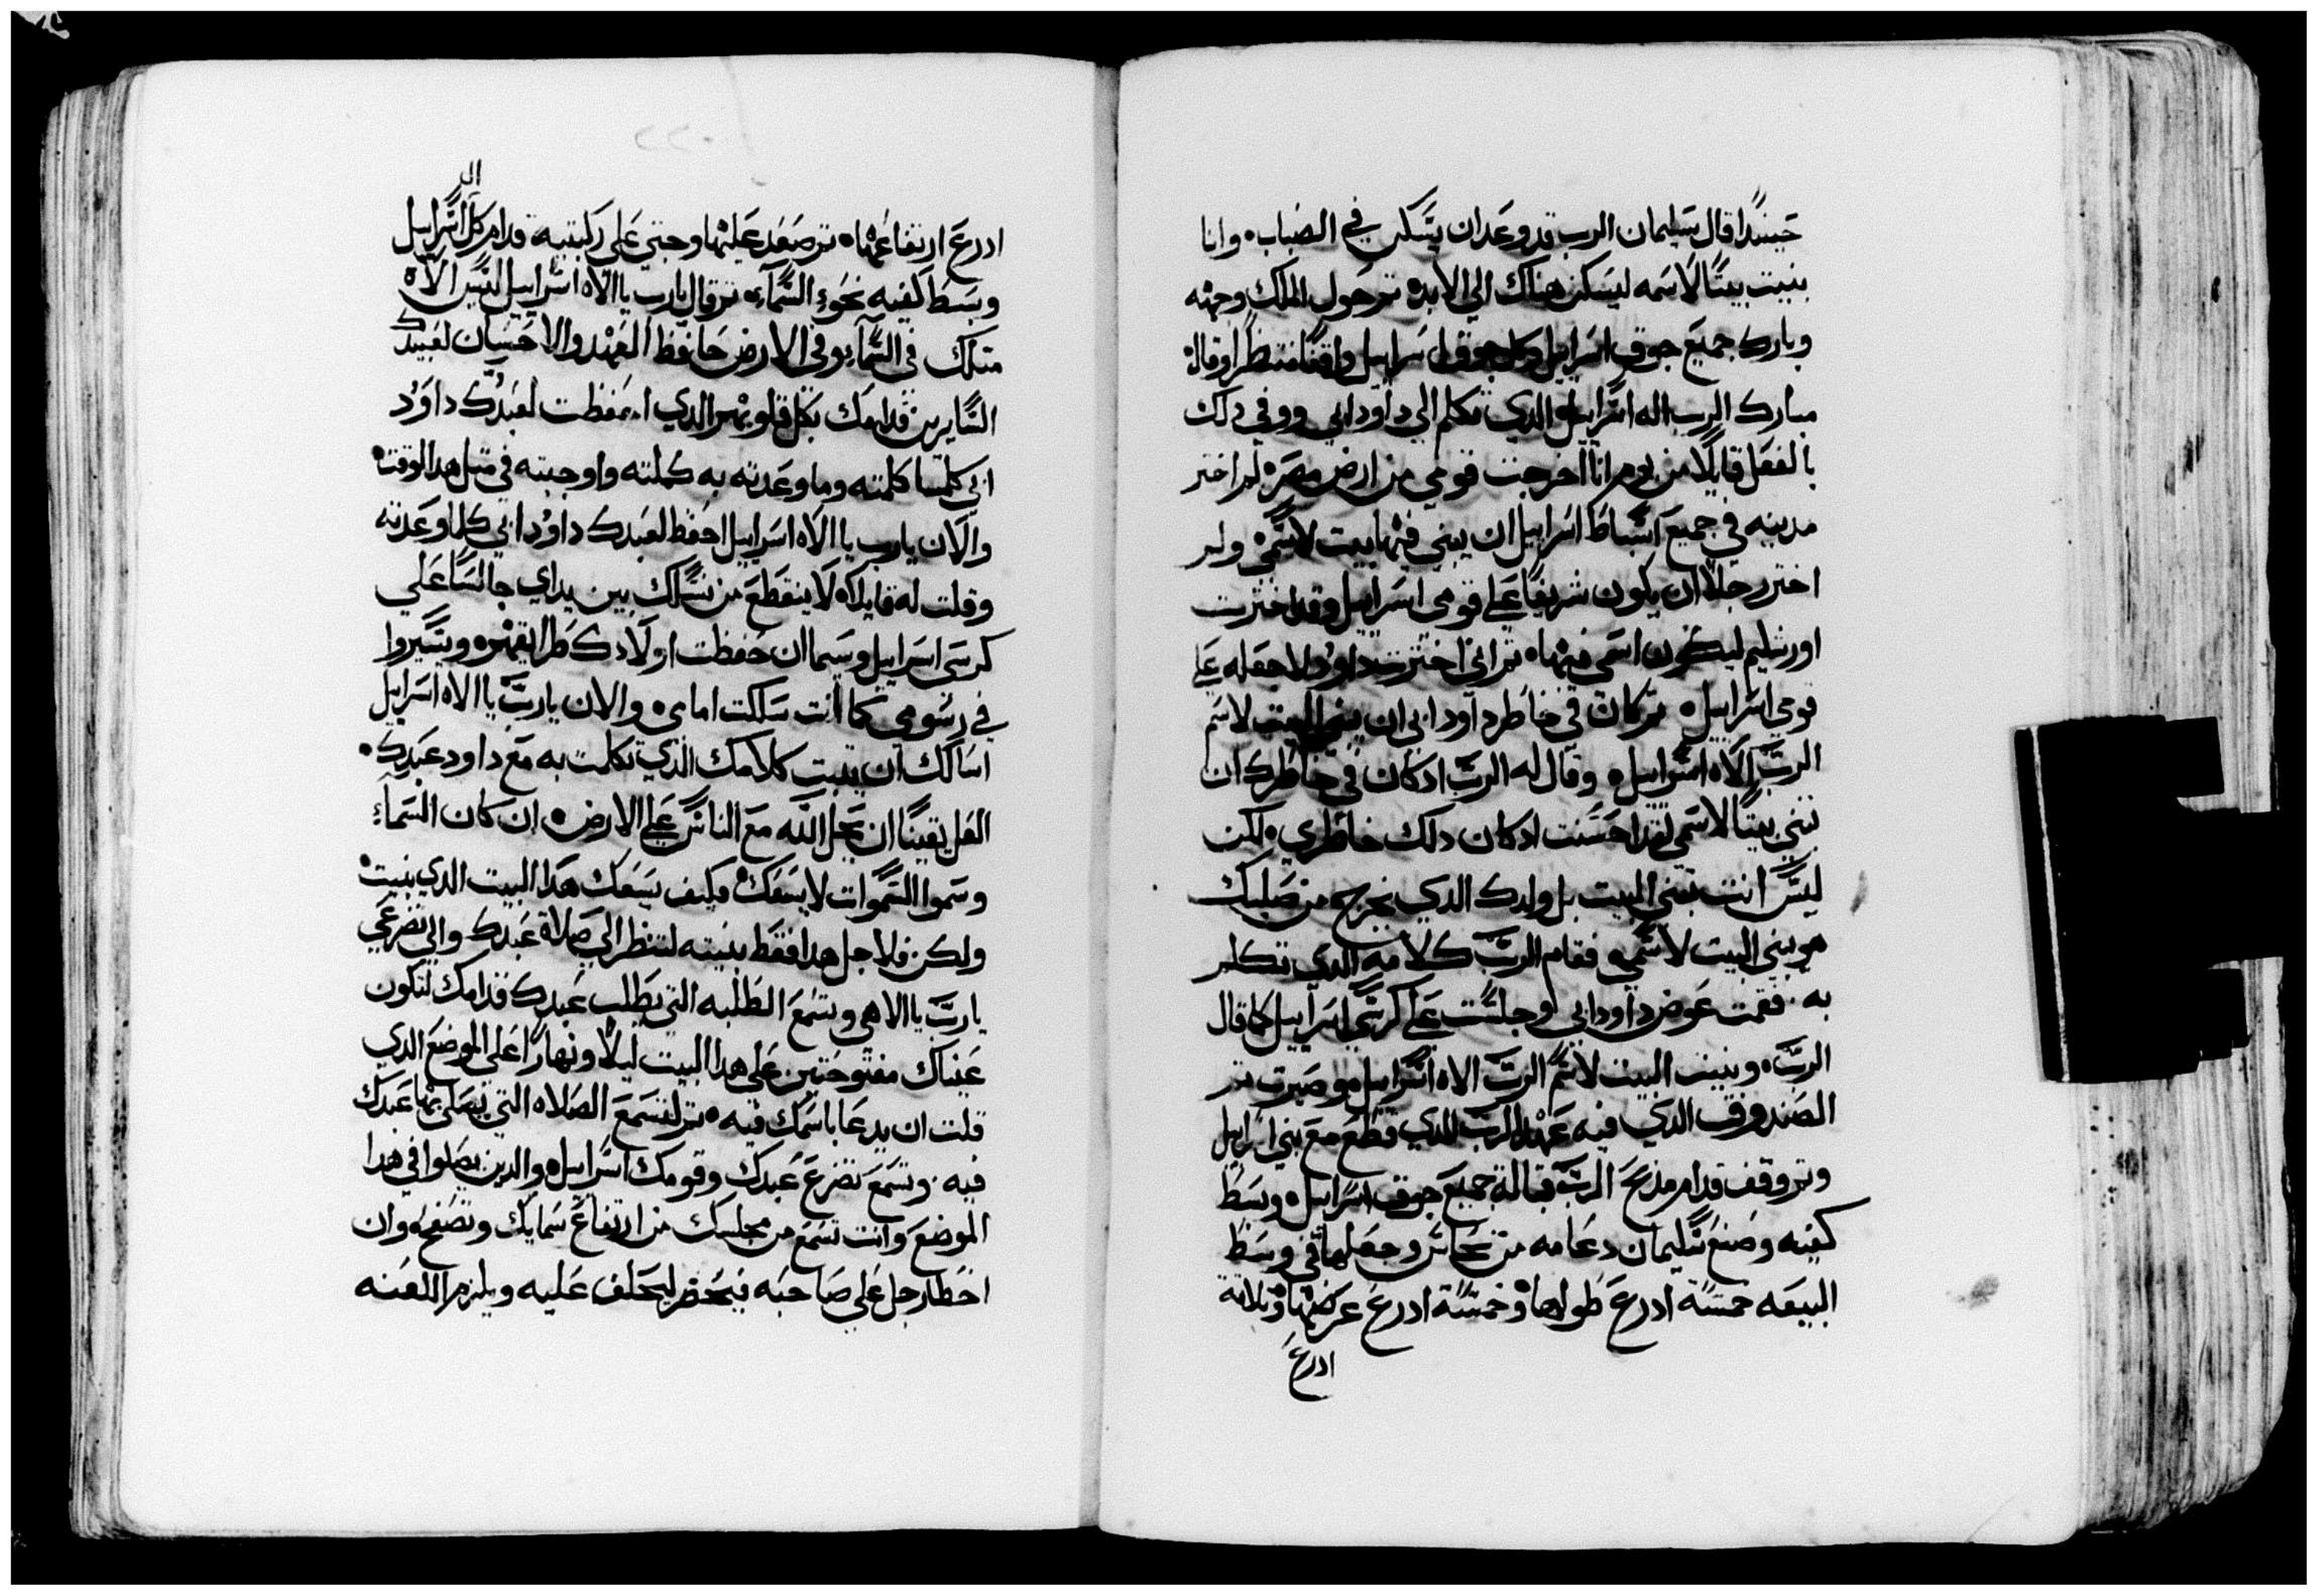 حينيدا قال سليمان الرب قد وعد ان يسكن في الضباب، وانا
بنيت بيتا لاسمه ليسكن هناك الي الابد، ثم حول الملك وجهه
وبارك جميع جوق اسراييل وكل جوق اسراييل واقفا منتظرا وقال
مبارك الرب اله اسراييل الدي تكلم الي داود ابي ووفي دلك
بالفعل قايلا من يوم انا اخرجت قومي من ارض مصر، لم اختر
مدينه في جميع اسباط اسراييل ان يبني فيها بيت لاسمي، ولم
اختر رجلا ان يكون شريفا علي قومي اسراييل وقد اخترت
اورشليم ليكون اسمي فيها، ثم اني اخترت داود لاجعله علي
قومي اسراييل، ثم كان في خاطر داود ابي ان يبني البيت لاسم
الرب الاه اسراييل، وقال له الرب اد كان في خاطرك ان
تبني بيتا لاسمي لقد احسنت اد كان دلك خاطري، لكن
ليس انت تبني البيت بل ولدك الدي يخرج من صلبك
هو يبني البيت لاسمي، فقام الرب كلامه الدي تكلم
به. فقمت عوض داود ابي وجلست علي كرسي اسراييل كما قال
الرب، وبنيت البيت لاسم الرب الاه اسراييل، وصيرت ثم
الصندوق الدي فيه عهد الرب الدي قطع مع بني اسراييل
وثم وقف قدام مذبح الرب قبالة جميع جوق اسراييل، وبسط
كفيه وصنع سليمان دعامه من نحاس وجعلها في وسط
البيعه خمسة ادرع طولها، وخمسة ادرع عرضها، وثلاثة
ادرع
ال
ادرع ارتفاعها، ثم صعد عليها وجتي علي ركبتيه قدام كل اسراييل
وبسط كفيه نحو السماء، ثم قال يارب يا الاه اسراييل ليس الاه
متلك في السماء وفي الارض حافظ العهد والاحسان لعبيدك
السايرين قدامك بكل قلوبهم الدي احفظت لعبدك داود
ابي كلمسا كلمته وما وعدته به كملته واوجبته في متل هدا الوقت،
والان يارب يا الاه اسراييل احفظ لعبدك داود ابي كلما وعدته
وقلت له قايلا، لا ينقطع من نسلك بين يداي جالسا علي
كرسي اسراييل وسيما ان حفظت اولادك طرايقهم، ويسيروا
في رسومي كما انت سلكت امامي، والان يارب يا الاه اسراييل
اسالك ان يتبت كلامك الدي تكلمت به مع داود عبدك،
الفل يقينا ان يحل الله مع الناس علي الارض، ان كان السماء
وسموا السموات لا يسعك، فكيف يسعك هدا البيت الدي بنيت،
ولكن فلاجل هدا فقط بنيته لتنظر الي صلاة عبدك والي تضرعي
يارب يا الاهي وتسمع الطلبه التي يطلب عبدك قدامك لتكون
عيناك مفتوحتين علي هدا البيت ليلا ونهارا علي الموضع الدي
قلت ان يدعا باسمك فيه، ثم لتسمع الصلاه التي يصلي بها عبدك
فيه. وتسمع تضرع عبدك وقومك اسراييل، والدين يصلوا في هدا
الموضع وانت تسمع من مجلسك من ارتفاع سمايك وتصفح، وان
اخطا رجل علي صاحبه فيحضر ليحلف عليه ويلزم اللعنه